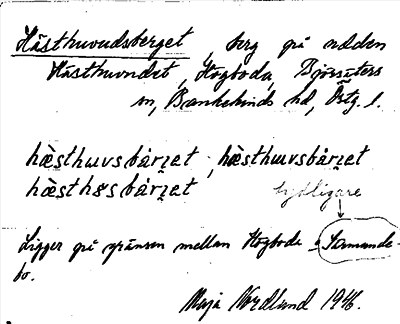 Hästhuvudsberget, berg på udden
Hästhuvudet, Högboda, Björsäters
sn, Bankekinds hd, Östg. l.
hæsthɯvsbår̯i̯et, hæsthɯvsbår̯i̯et
hæsthɞsbår̯i̯et tydligare
Ligger på gränsen mellan Högboda o Sananda-
bo.
Maja Nordlund 1946.